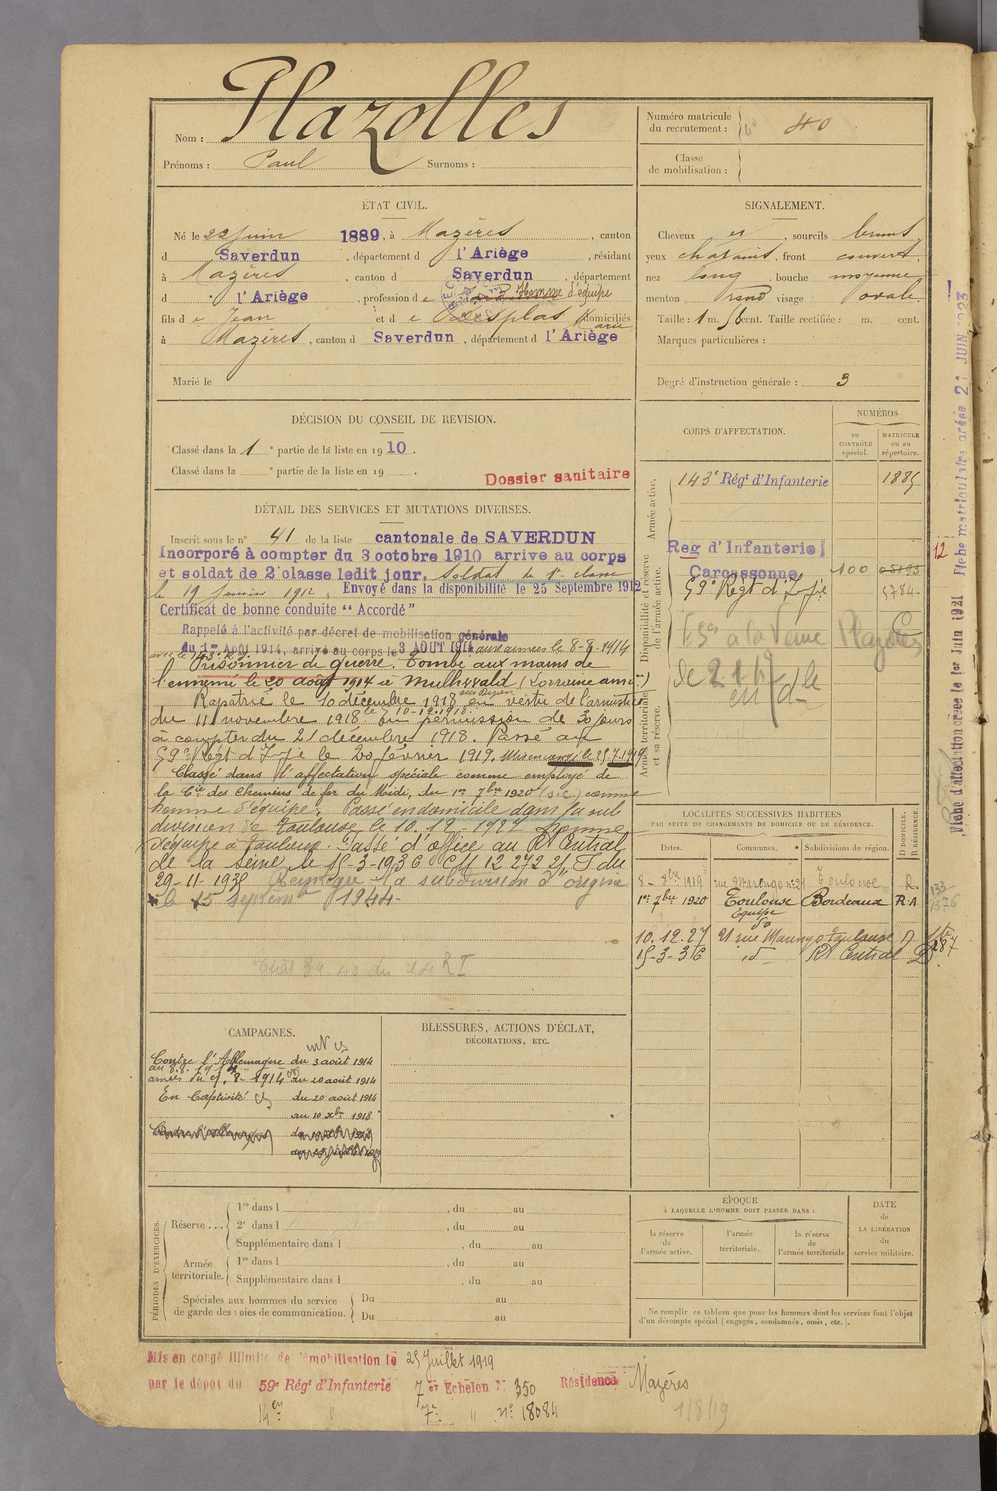 Nom : Plazolles
Prénoms : Paul Surnoms :
Numéro matricule
du recrutement : 40
Classe
de mobilisation :
ÉTAT CIVIL.
Né le 22 juin 1889, à Mazères, canton
d Saverdun, département d l'Ariège, résidant
à Mazères, canton d Saverdun, département
d l'Ariège, profession d e Homme d'équipe
fils d e Jean et d e Desplas Marie domiciliés
à Mazères, canton d Saverdun, département d l'Ariège
Marié le
SIGNALEMENT.
Cheveux et, sourcils bruns
yeux chatains, front couvert
nez long, bouche moyenne
menton rond visage ovale
Taille : 1 m. 56 cent. Taille rectifiée : m. cent.
Marques particulières :
Degré d'instruction générale : 3
DÉCISION DU CONSEIL DE REVISION.
Classé dans la 1e partie de la liste en 1910.
Classé dans la e partie de la liste en 19 .
Dossier sanitaire
DÉTAIL DES SERVICES ET MUTATIONS DIVERSES.
Inscrit sous le n° 41 de la liste cantonale de SAVERDUN
Incorporé à compter du 3 octobre 1910 arrivé au corps
et soldat de 2e classe ledit jour. Soldat de 1re classe
le 19 janvier 1912, Envoyé dans la disponibilité le 25 Septembre 1912
Certificat de bonne conduite "Accordé"
Rappelé à l'activité par décret de mobilisation générale
du 1er Août 1914, arrivé au corps le 3 AOUT 1914 aux armées le 8-8-1914
Prisonnier de guerre. Tombé aux mains de
l'ennemi le 20 août 1914 à Mulhwald (Lorraine ann.)
Rapatrié le 10 décembre 1918 en vertu de l'armistice
du 11 novembre 1918. En permission de 30 jours
à compter du 21 décembre 1918. Passé au
59e Régt d'Infie le 20 février 1919. Mis en congé le 25.7.1919
Classé dans l'affectation spéciale comme employé de
la Cie des Chemins de fer du Midi, du 1er 7bre 1920 (s.c) comme
homme d'équipe. Passé en domicile dans la sub
division de Toulouse le 10-12-1927 homme
d'équipe à Toulouse. Passé d'office au Rt Central
de la Seine le 15-3-1936 CM 12 272 2/, T du
29-11-1935 Réintègre la subdivision d'origine
le 15 septem 1944.
CORPS D'AFFECTATION.
NUMÉROS
au
CONTRÔLE
spécial.
MATRICULE
ou au
répertoire.
Armée active.
143e Régt d'Infanterie 1885
Disponibilité et réserve
de l'armée active.
Reg d'Infanterie
Carcassonne 100
59e Régt d'Infie 5784
Armée territoriale
et sa réserve.
LOCALITÉS SUCCESSIVES HABITÉES
PAR SUITE DE CHANGEMENTS DE DOMICILE OU DE RÉSIDENCE.
Dates. Communes. Subdivisions de région. D DOMICILE. R RÉSIDENCE
8-8bre 1919 rue Marengo n° 21 Toulouse R.
1er 7bre 1920 Toulouse Bordeaux R.A
Equipe
10.12.27 21 rue Marengo Toulouse D
15-3-36 id Rt Central D
CAMPAGNES.
Contre l'Allemagne du 3 août 1914
au 8.8.1914
armées du 9-8-1914 au 20 août 1914
En Captivité du 20 août 1914
au 10 Xbre 1918
BLESSURES, ACTIONS D'ÉCLAT,
DÉCORATIONS, ETC.
PÉRIODES D'EXERCICES.
Réserve ... 1re dans l , du au
2e dans l , du au
Supplémentaire dans l , du au
Armée
territoriale. 1re dans l , du au
Supplémentaire dans l , du au
Spéciales aux hommes du service
de garde des voies de communication. Du au
Du au
ÉPOQUE
À LAQUELLE L'HOMME DOIT PASSER DANS :
la réserve
de
l'armée active.
l'armée
territoriale.
la réserve
de
l'armée territoriale
DATE
de
LA LIBÉRATION
du
service militaire.
Ne remplir ce tableau que pour les hommes dont les services font l'objet
d'un décompte spécial (engagés, condamnés, omis, etc.).
Mis en congé illimité de démobilisation le 25 Juillet 1919
par le dépôt du 59e Régt d'Infanterie 7 er Echelon N° 350 Résidence Mazères
14e " 7e " n° 18084
1/8/19
Fiche d'affectation créée le 1er Juin 1921 Fiche matriculaire créée 21 JUIN 1923
12